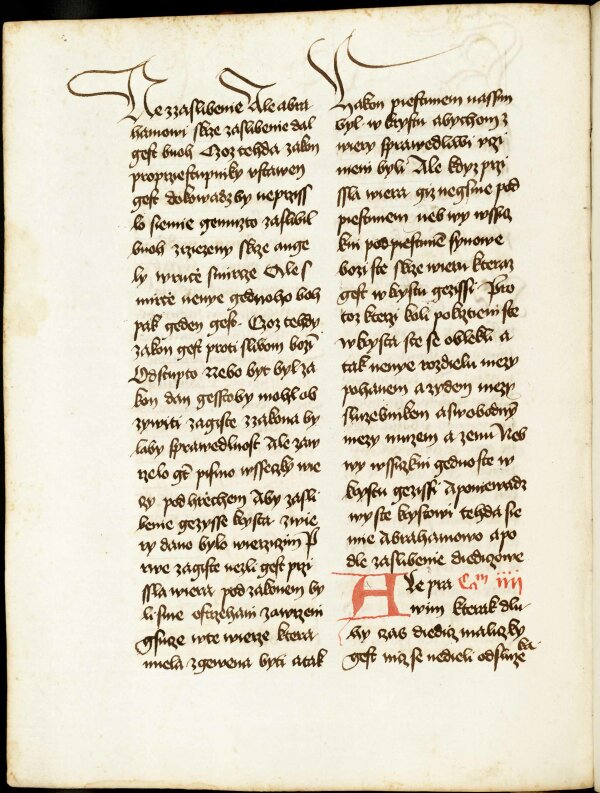 Ne zzaslibenie Ale abra
hamowi skrze zaslibenie dal
gest buoh Czoz tehda zakon
proprzestupniky vstawen
gest dokowadz by neprziss
lo siemie gemuzto zaslibil
buoh zrziezeny skrze ange
ly wruce smirze Ale s
mirce nenye gednoho boh
pak geden gest Czoz tehdy
zakon gest proti slibom bozi
Odstupto Nebo byt byl za
kon dan gesstoby mohl ob
zywiti zagiste zzakona by
laby sprawedlnost Ale zaw
rzelo gt pismo wsseczky wie
czy pod hrziechem Aby zasli
benie gezysse krysta wie
rzy dano bylo wierziczim P
rwe zagiste nezli gest przi
ssla wiera pod zakonem by
li sme ostrzehani zawrzeni
gsucze wte wierze ktera
miela zgewena byti a tak
zakon piestunem nassim
byl w krystu abychom z
wiery sprawedliwi vczi
nieni byli Ale kdyz przi
ssla wiera giz negsme pod
piestunem neb wy wssicz
kni pod piestunem synowe
bozi ste skrze wieru kteraz
gest w krystu gezissi Pro
toz kterzi koli pokrztieni ste
w krysta ste se oblekli a
tak nenye rozdielu mezy
pohanem a zydem mezy
sluzebnikem a swobodny
mezy muzem a zenu Neb
wy wssiczkni gedno ste w
krystu gezissi A poniewadz
wy ste krystowi tehda sie
mie Abrahamowo a po
dle zaslibenie diediczowe
Ale pra Cam iiii
wim kterak dlu
hy czas diedicz maliczky
gest nicz se nedieli od sluze
ka